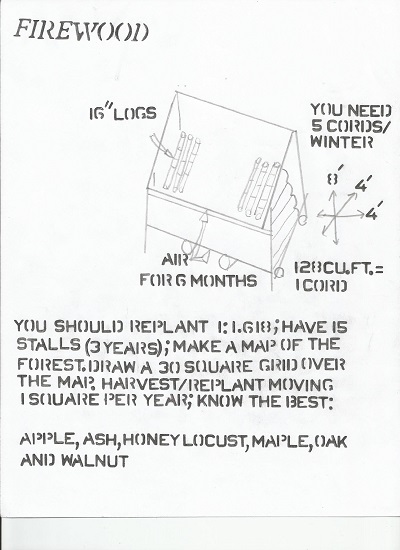 FIREWOOD
16" LOGS
YOU NEED
5 CORDS/
WINTER
8'
4'
4'
AIR
FOR 6 MONTHS
128 CU. FT. =
1 CORD
YOU SHOULD REPLANT 1:1.618; HAVE 15
STALLS (3 YEARS); MAKE A MAP OF THE
FOREST. DRAW A 30 SQUARE GRID OVER
THE MAP. HARVEST/REPLANT MOVING
1 SQUARE PER YEAR; KNOW THE BEST:
APPLE, ASH, HONEY LOCUST, MAPLE, OAK
AND WALNUT